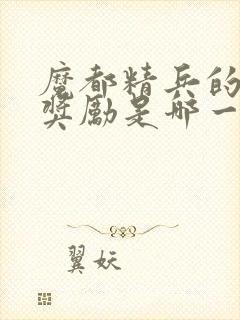 魔都精兵的
奖励是哪一
翼妖